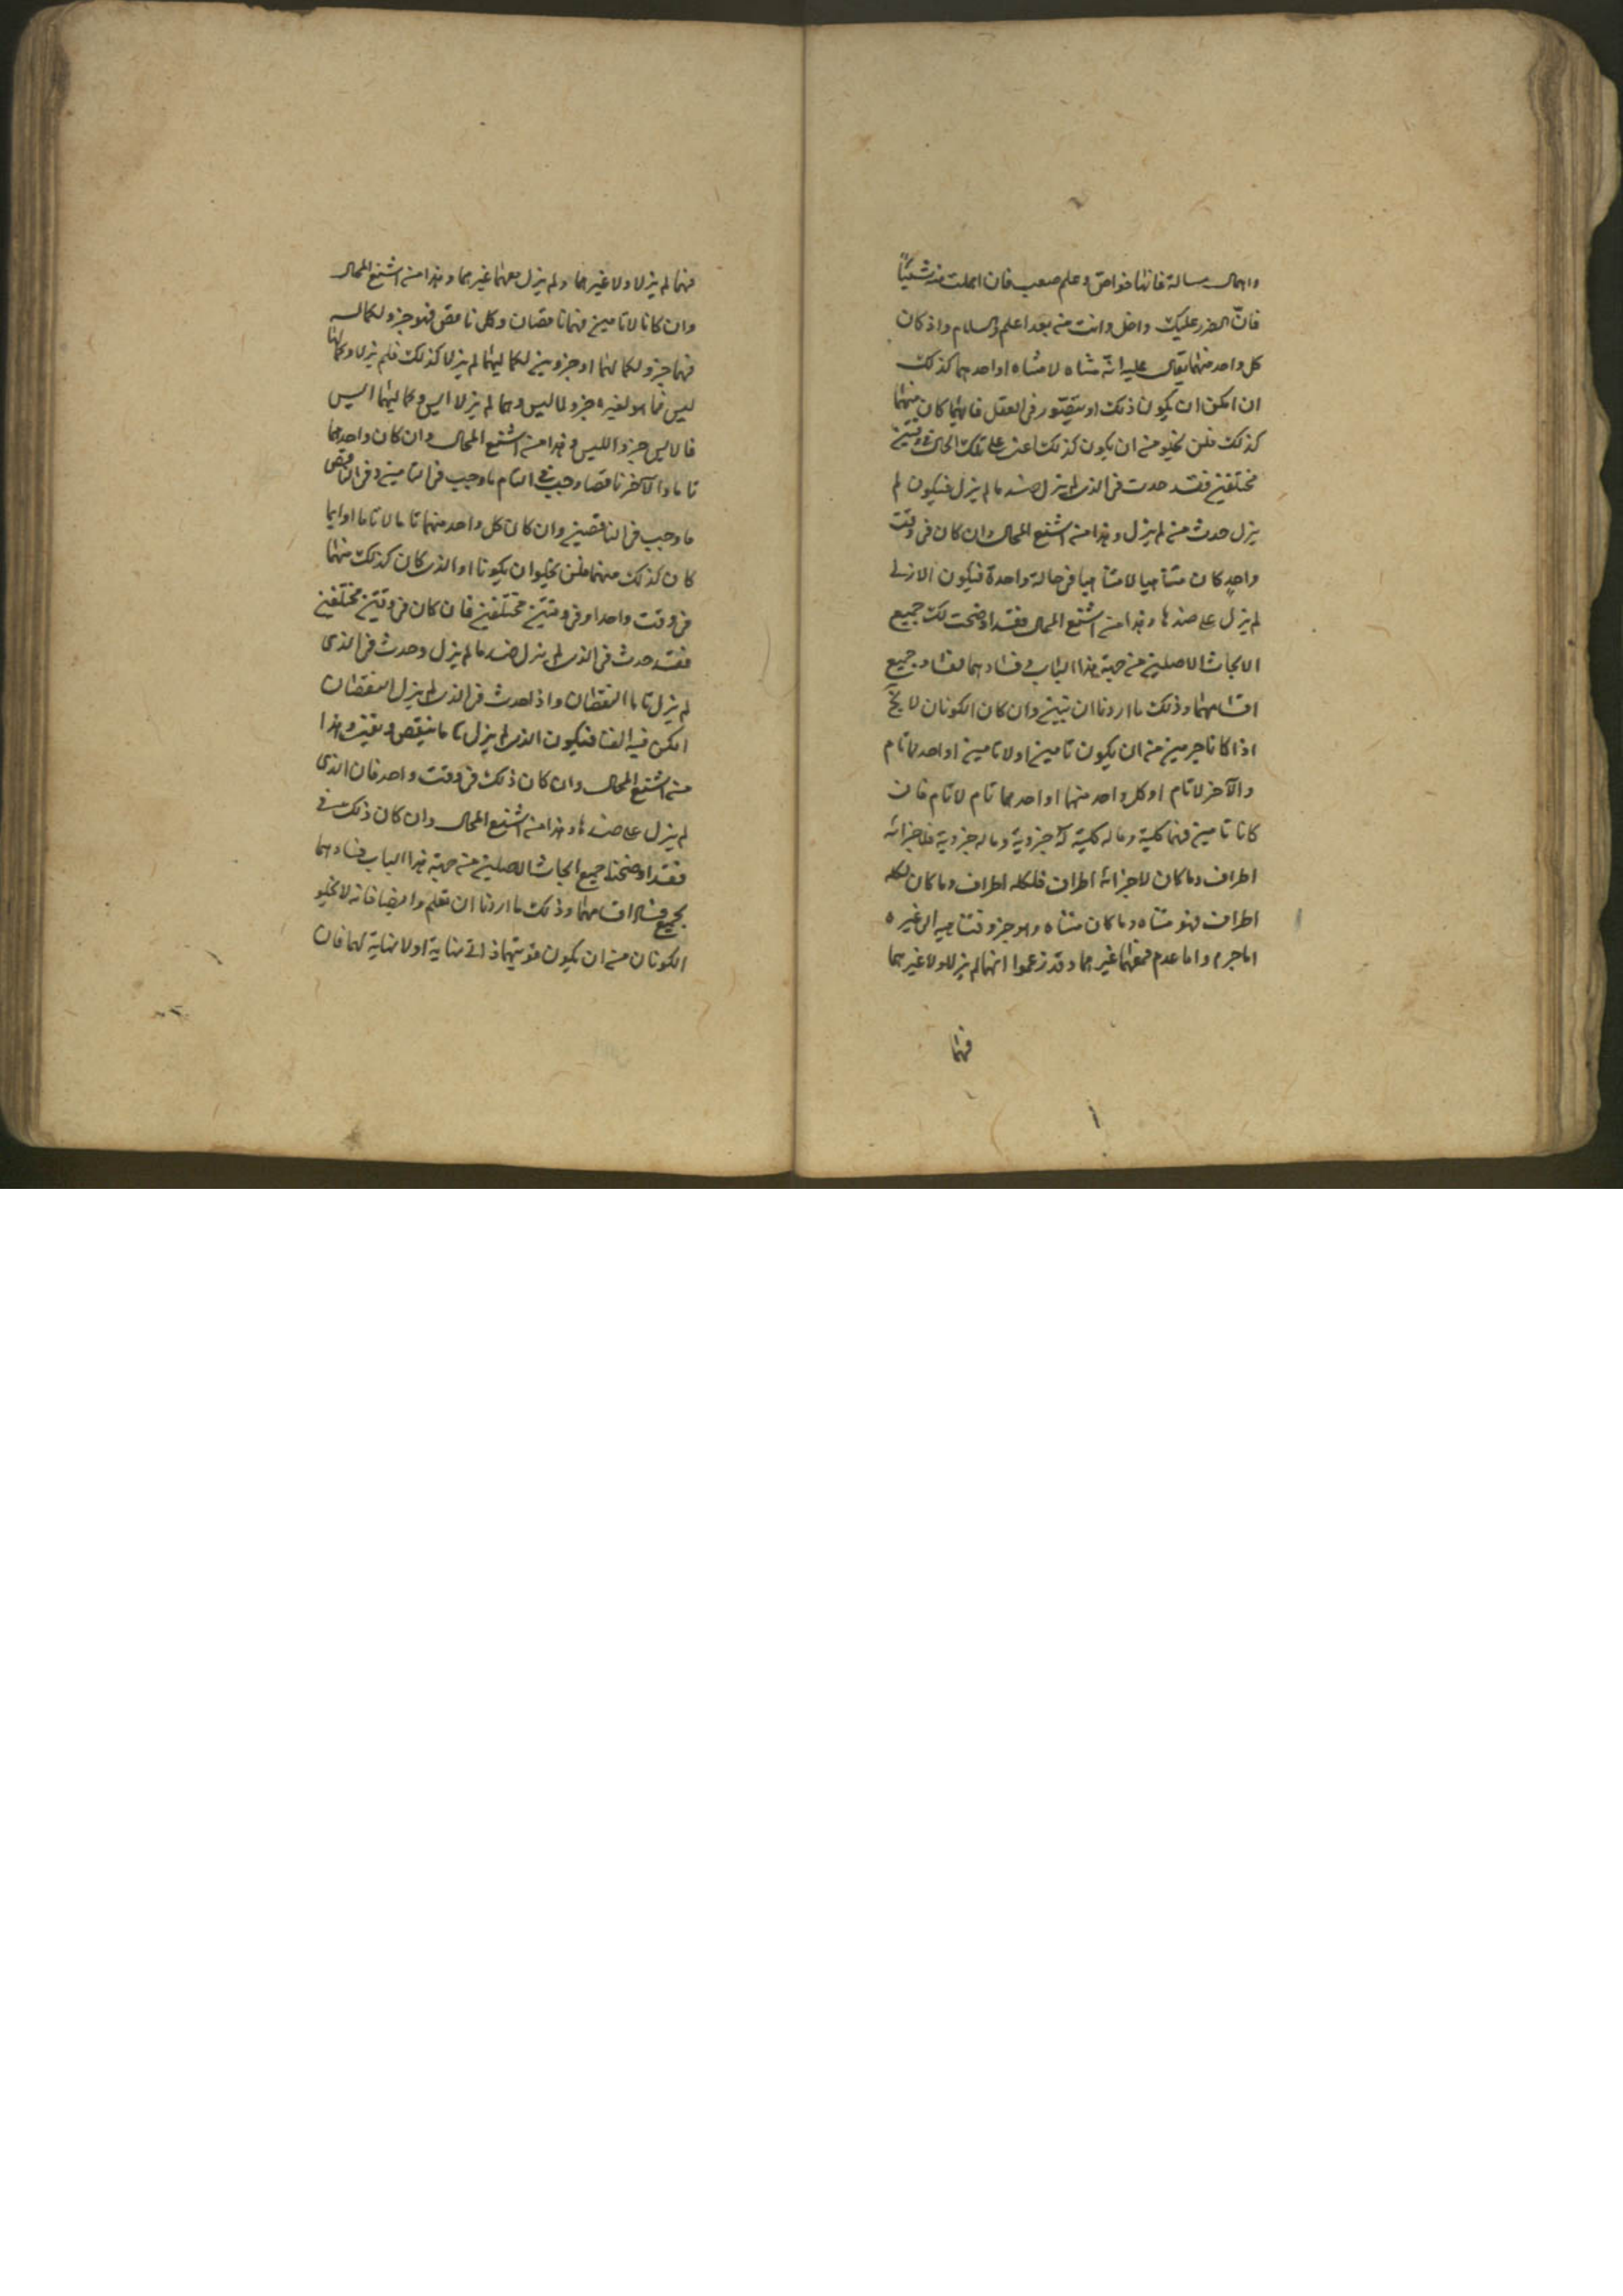 واهمال رسالة فانها خواص وعلم صعب فان اهملت منه شيئاً
فانّ الضرر عليك داخل وانت منه بعد اعلم والسلام واذ كان
كل واحد منهما يقال عليه انّه متناه لا متناه او احدهما كذلك
ان امكن ان يكون ذلك او يتصوّر فى العقل فايهما كان منهما
كذلك فلن يخلو من ان يكون كذلك على تلك الحال فى وقتين
مختلفين فقد حدث فى الذى لم يزل ضد ما لم يزل فيكون لم
يزل حدث منه لم يزل وهذا من اشنع المحال وان كان فى وقت
واحدٍ كان متناهيا لا متناهيا فى حالة واحدة فيكون الازلى
لم يزل على ضدها وهذا من اشنع المحال فقد اوضحت لك جميع
الابحاث الاصلين من جهة هذا الباب وفسادهما لفساد جميع
اقسامهما وذلك ما اردنا ان نبين وان كان الكونان لا يخ
اذا كانا جرمين من ان يكون تامين او لا تامين او احدهما تام
والآخر لا تام او كل واحد منهما او احدهما تام لا تام فان
كانا تامين فهما كلية وما له كلية له جزوية وما له جزوية فلاجزائه
اطراف وما كان لاجزائه اطراف فلكله اطراف وما كان لكله
اطراف فهو متناه وما كان متناه وهو جزو فتناهيه الى غيره
اما جرم واما عدم فمعهما غيرهما وقد زعموا انهما لم يزلا ولا غيرهما
فهما
فهما لم يزلا ولا غيرهما ولم يزل معهما غيرهما وهذا من اشنع المحال
وان كانا لا تامين فهما ناقصان وكل ناقص فهو جزو لكماله
فهما جزو لكمالهما او جزوين لكماليهما لم يزلا كذلك فلم يزلا وكمالهما
ليس فما هو لغيره جزو لما ليس وهما لم يزلا ايس وكماليهما ليس
فالايس جزو الليس وهذا من اشنع المحال وان كان واحدهما
تاما والآخر ناقصا وجب فى التام ما وجب فى التامين وفى الناقص
ما وجب فى الناقصين وان كان كل واحد منهما تاما لا تاما او ايما
كان كذلك منهما فلن يخلوا ان يكونا او الذى كان كذلك منهما
فى وقت واحد او فى وقتين مختلفين فان كان فى وقتين مختلفين
فقد حدث فى الذى لم يزل ضد ما لم يزل وحدث فى الذى
لم يزل تاما النقصان واذا حدث فى الذى لم يزل النقصان
امكن فيه الفنا فيكون الذى لم يزل تاما ينقص ويفنى وهذا
من اشنع المحال وان كان ذلك فى وقت واحد فان الذى
لم يزل على ضدها وهذا من اشنع المحال وان كان ذلك فى
فقد اوضحنا جميع ابحاث الاصلين من جهة هذا الباب وفسادهما
بجميع فساد اقسامهما وذلك ما اردنا ان نعلم وايضا فانه لا يخلو
الكونان من ان يكون قوتيهما ذاتى نهاية او لا نهاية لهما فان